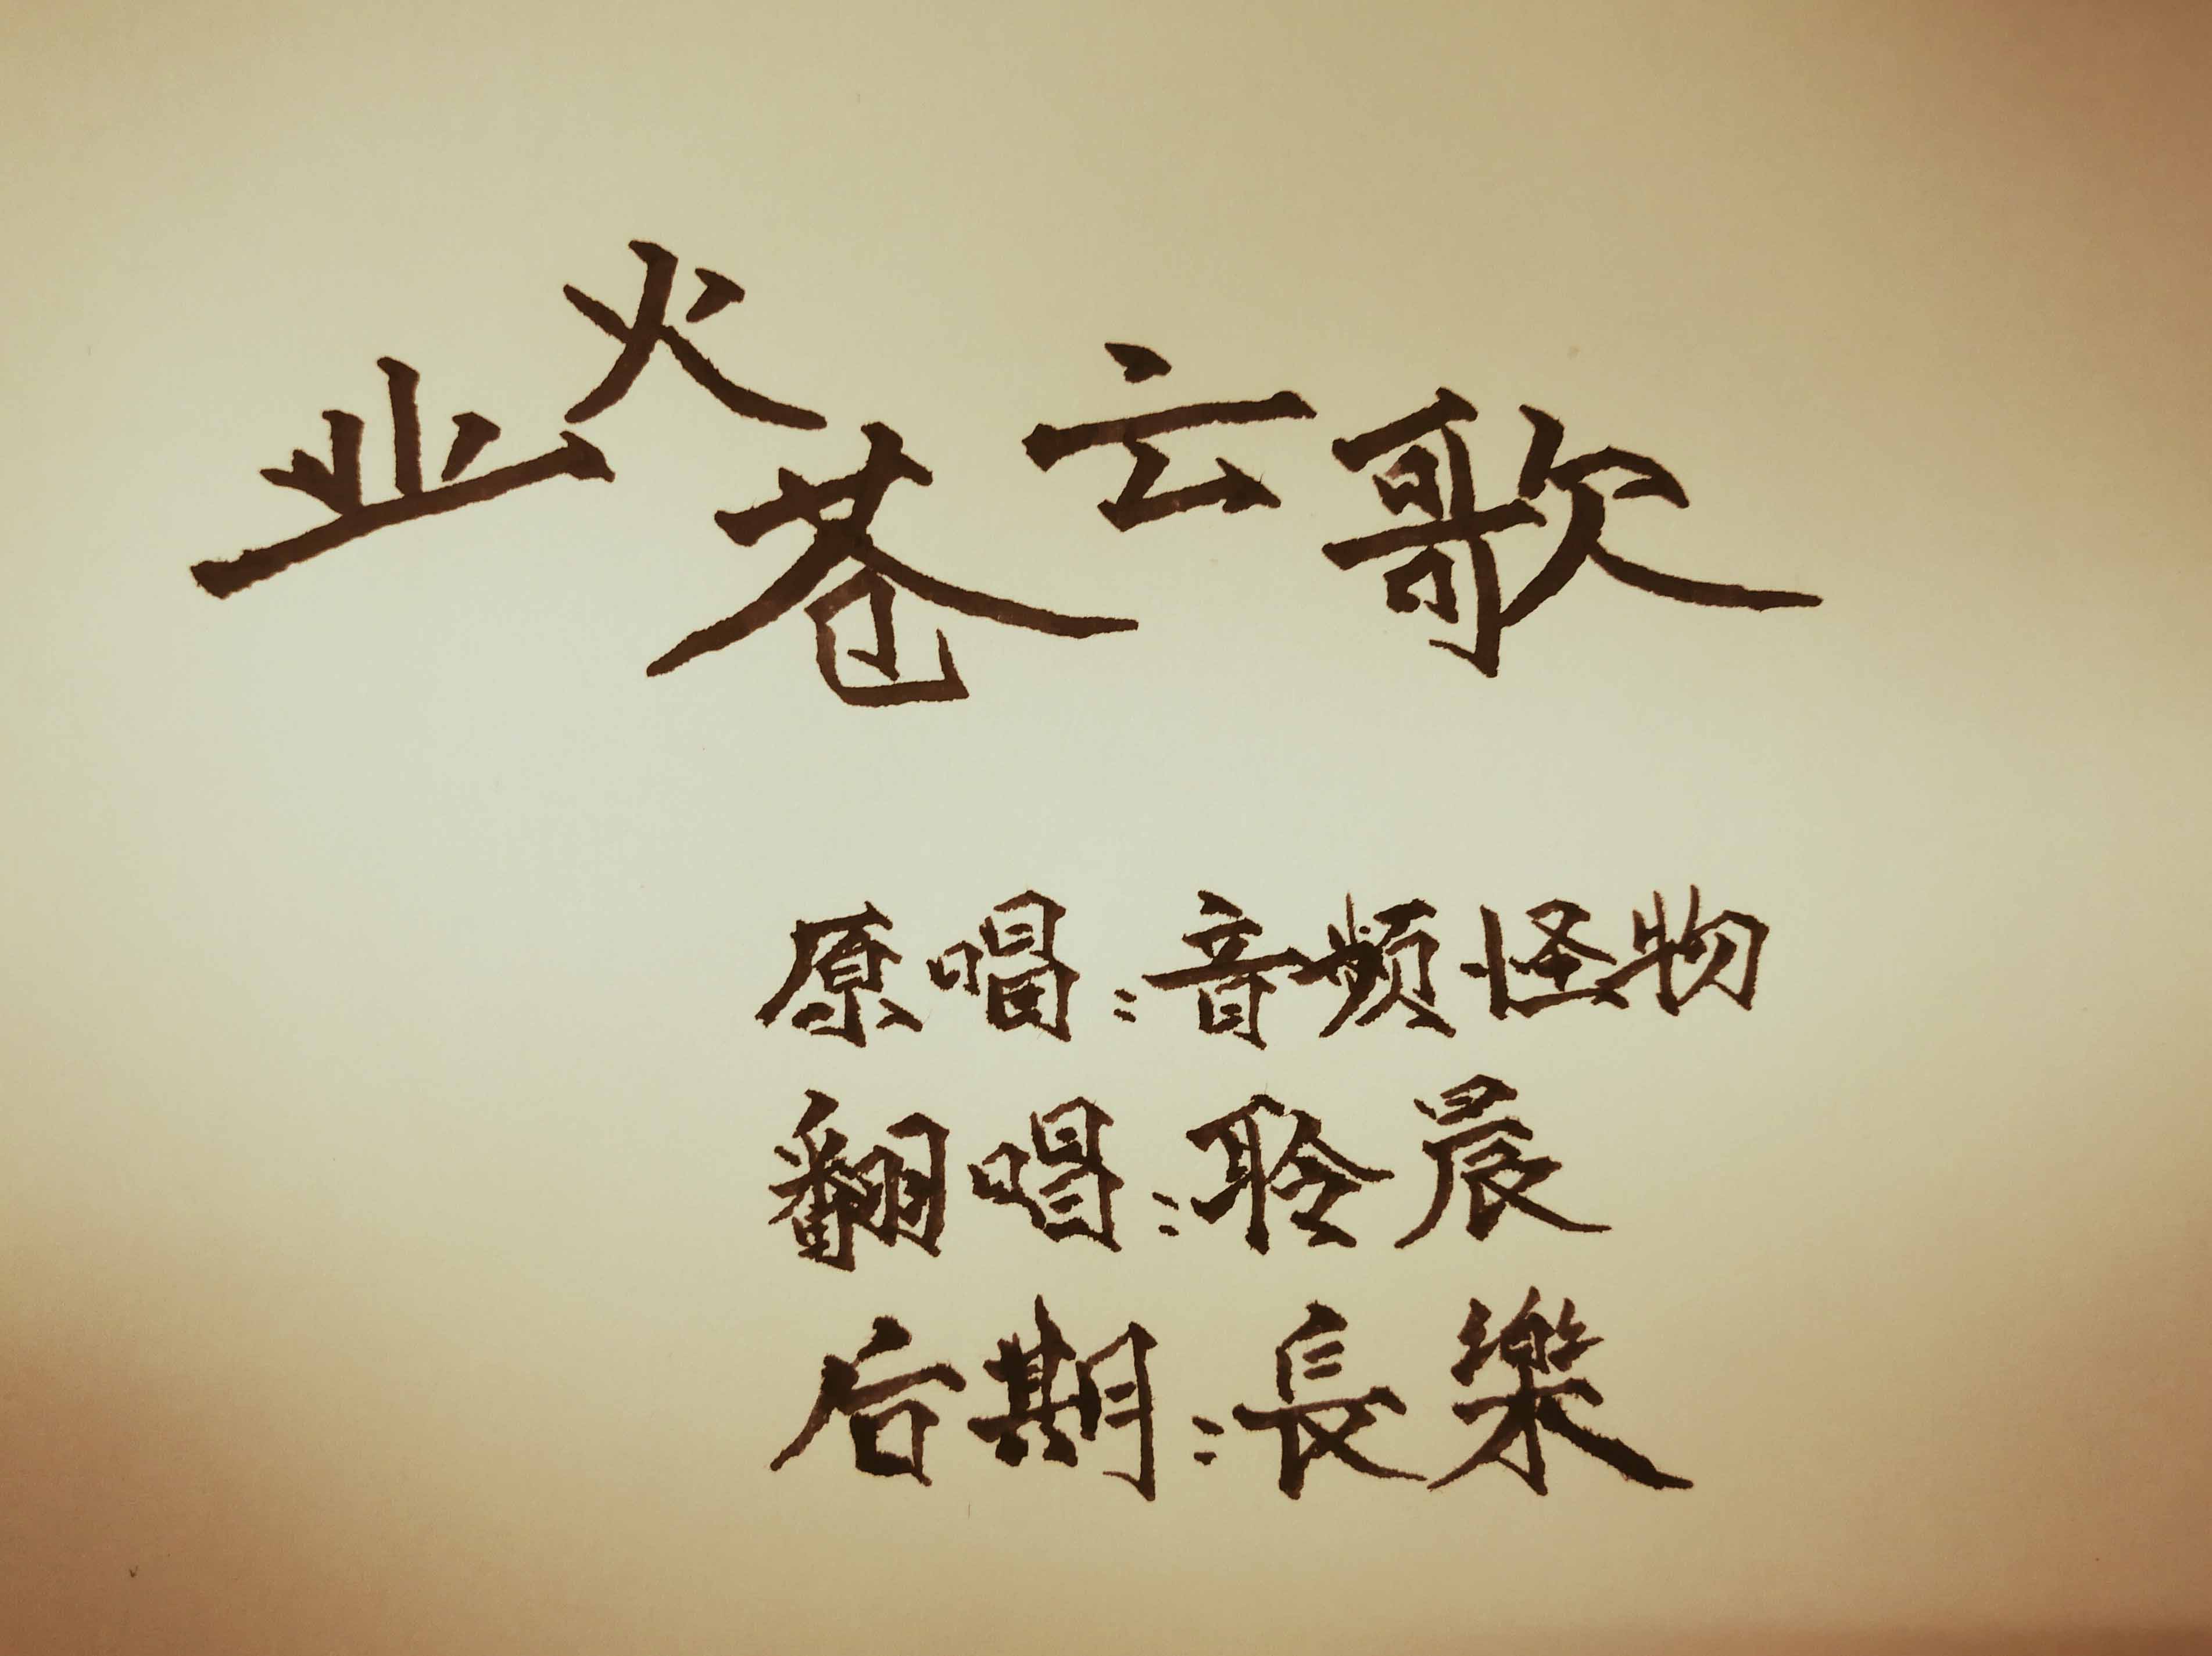 业火苍云歌
原唱:音频怪物
翻唱:聆晨
后期:長樂